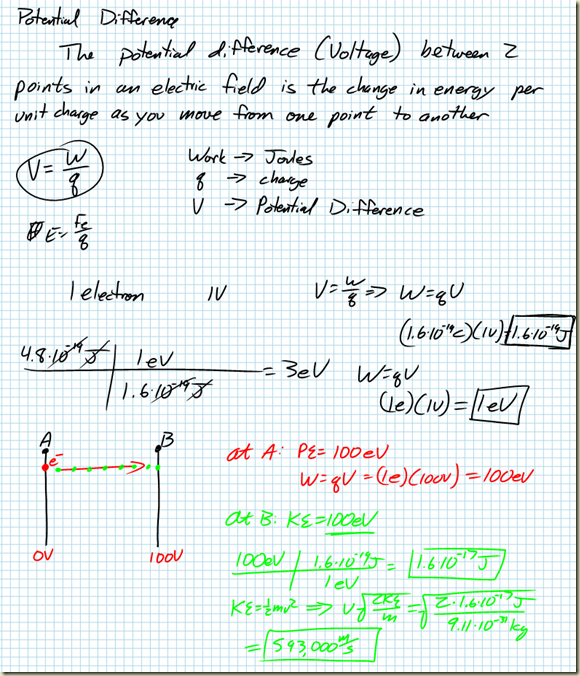 Potential Difference
The potential difference (Voltage) between 2
points in an electric field is the change in energy per
unit charge as you move from one point to another
V = W/q
Work → Joules
q → charge
V → Potential Difference
E = Fe/q
1 electron 1V V = W/q ⇒ W = qV
(1.6·10⁻¹⁹C)(1V) = 1.6·10⁻¹⁹J
4.8·10⁻¹⁹ J | 1eV / 1.6·10⁻¹⁹ J = 3eV
W = qV
(1e)(1V) = 1eV
A B
e⁻
0V 100V
at A: PE = 100eV
W = qV = (1e)(100V) = 100eV
at B: KE = 100eV
100eV | 1.6·10⁻¹⁹J / 1eV = 1.6·10⁻¹⁷J
KE = ½mv² ⇒ v = √(2KE/m) = √(2·1.6·10⁻¹⁷J / 9.11·10⁻³¹kg)
= 593,000 m/s